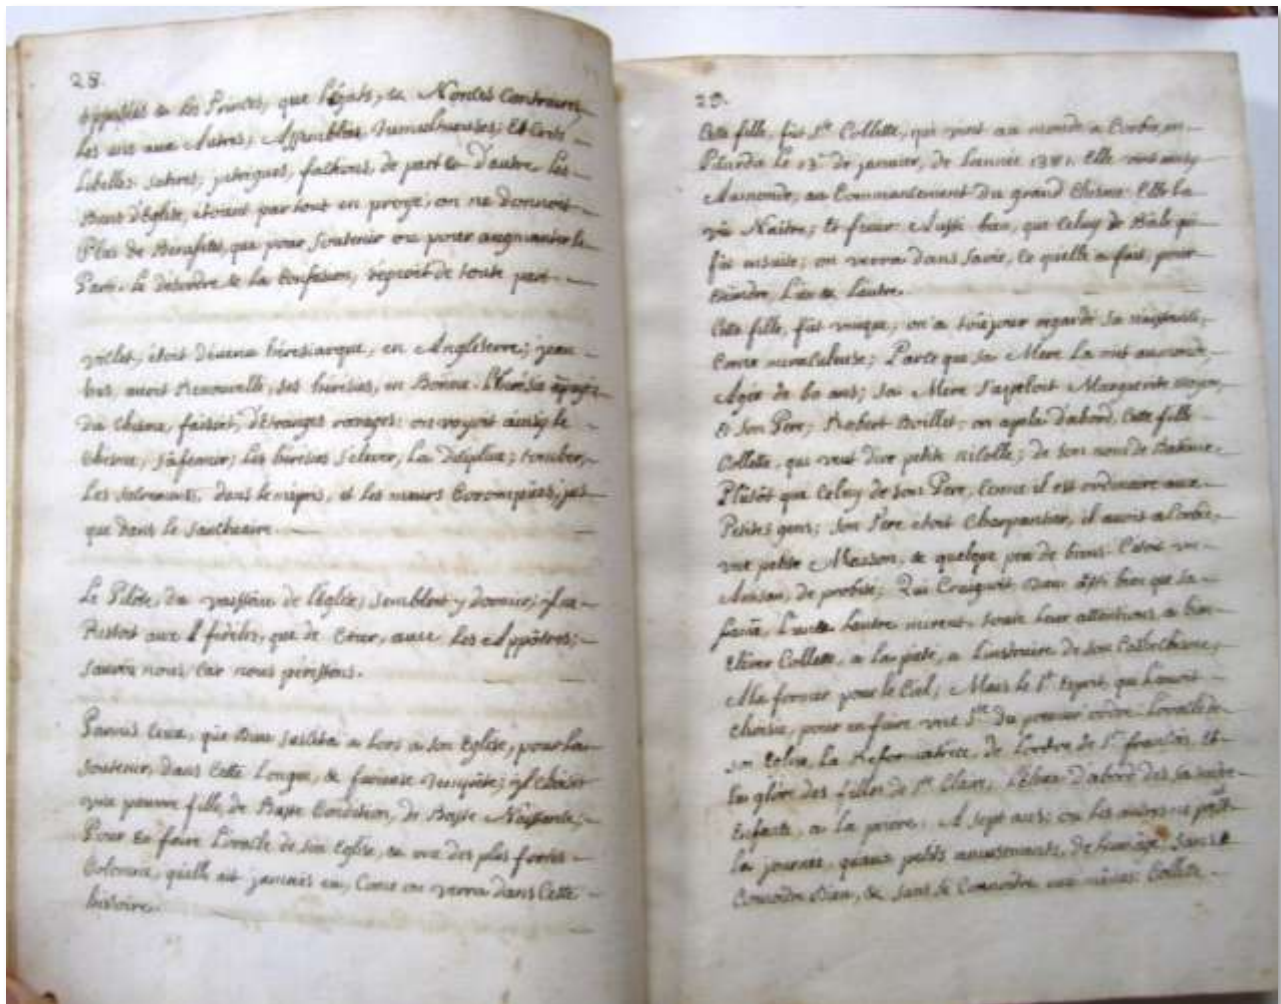 28.
opposés & les Princes, que légats, & Nonces Contraires
Les uns aux Autres; Assemblées Tumultueuses; Et Cents
Libelles. satires, jntrigues, factions, de part & d'autre. les
Biens d'Eglise, étoient par tout en proye; on ne donnoit
Plus de Benefices, que pour soutenir ou pour augmenter le
Parti. le desordre & la Confusion, régnoit de toute part
viclef, étoit devenu hérésiarque, en Angleterre; jean
hus, avoit Renouvellé, ses hérésies, en Boheme. l'hérésie
du chisme, faisoit, d'étranges ravages: on voyoit ainsy le
chisme, s'afermir; les hérésies s'elever, La Disipline; tomber,
Les sacrements, dans le mépris, et les mœurs Corompües, jus
que dans le sanctuaire.
Le Pilôte, du vaisseau de l'Eglise, sembloit y dormir; jl ne
Restoit aux fideles, que de Crier, avec les Appôtres;
sauvés nous, Car nous périssons.
Parmis Ceux, que Dieu suscita a lors a son Eglise, pour La
soutenir, dans Cette Longue, & furieuse Tempête; jl choisit
une pauvre fille, de Basse Condition, de Basse Naissance,
Pour En faire L'oracle de son Eglise, & une des plus fortes
Colomne, qu'elle ait jammais eu, Come on verra dans Cette
histoire.
29.
Cette fille, fut Ste Collette, qui vint au monde a Corbie, en
Picardie le 13e de janvier, de L'année 1381. Elle vint
Aumonde, au Commancement du grand chisme. Elle la
vû Naître, Et finir Aussi bien, que Celuy de Bale qui
fut ensuite; on verra dans sa vie, Ce quelle a fait, pour
Eteindre, L'un & L'autre.
Cette fille, fut unique, on a toujour regardé sa naissance,
Come miraculeuse; Parce que sa Mere La mit aumonde,
Agée de 60 ans; sa Mere s'appeloit Marguerite moyon,
& son Pere, Robert Boillet; on apela d'abord, Cette fille
Collette, qui veut dire petite nicolle; de son nom de Batême,
Plûtôt que Celuy de son Pere, Come il est ordinaire aux
Petites gens; son Pere étoit Charpantier, il avoit a Corbie,
une petite Maison, & quelque peu de biens. C'étoit un
Artisan, de probité; Qui Craignoit Dieu aussi bien que sa
faime, L'un & L'autre mirent. toute leur attentions, a bien
Elever Collette, a La piété, a L'instruire de son Cathechisme,
A la former pour le Ciel; Mais le St Esprit, qui L'avoit
choisie, pour en faire une Ste du premier ordre. L'oracle de
son Eglise, La Reformatrice, de L'ordre de St françois, Et
La gloire des filles de Ste Claire, L'Eleva d'abord dés sa tendre
Enfance, a la priere. A sept ans; ou les autres ne passe
la journée, qu'aux petits amusements, de leur âge. sans
Connoitre Dieu, & sans se Connoitre eux mêmes. Collette